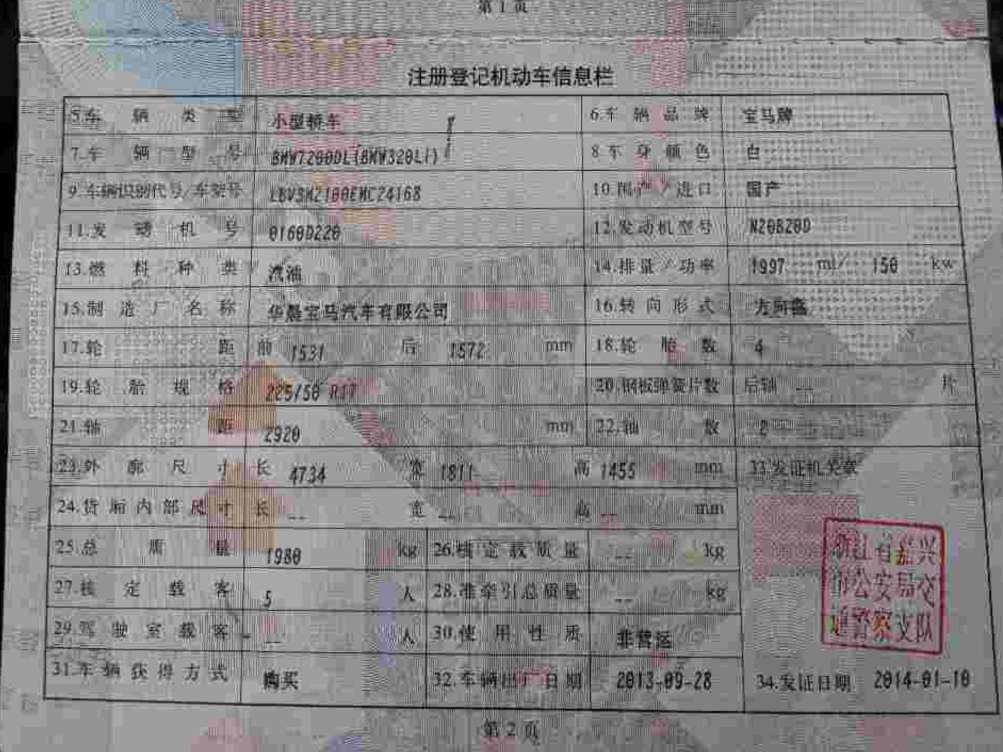 第1页
注册登记机动车信息栏
5.车辆类型 小型轿车 6.车辆品牌 宝马牌
7.车辆型号 BMW7200DL(BMW320Li) 8.车身颜色 白
9.车辆识别代号/车架号 LBV3M2100EMC24168 10.国产/进口 国产
11.发动机号 0160D220 12.发动机型号 N20B20D
13.燃料种类 汽油 14.排量/功率 1997 ml/ 150 kw
15.制造厂名称 华晨宝马汽车有限公司 16.转向形式 方向盘
17.轮距 前 1531 后 1572 mm 18.轮胎数 4
19.轮胎规格 225/50 R17 20.钢板弹簧片数 后轴 -- 片
21.轴距 2920 mm 22.轴数 2
23.外廓尺寸 长 4734 宽 1811 高 1455 mm 33.发证机关章
24.货厢内部尺寸 长 -- 宽 -- 高 -- mm
25.总质量 1980 kg 26.核定载质量 -- kg
27.核定载客 5 人 28.准牵引总质量 -- kg
29.驾驶室载客 -- 人 30.使用性质 非营运
浙江省嘉兴
市公安局交
通警察支队
31.车辆获得方式 购买 32.车辆出厂日期 2013-09-28 34.发证日期 2014-01-10
第2页